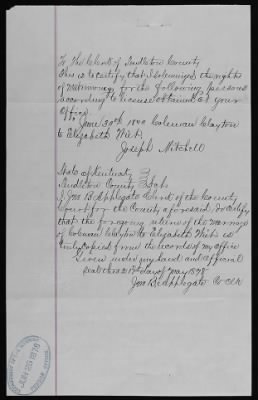 To The Clerk of Pendleton County
This is to certify that I solemnized the rights
of Matrimony for the following persons
according to license obtained at your
Office
June 30th 1840 Coleman Clayton
to Elizabeth
Joseph Mitchell
State of Kentucky
Pendleton County
I, Jno B Applegate Clerk of the County
Court for the County aforesaid do certify
that the foregoing return of the marriage
of Coleman Clayton to Elizabeth is
truly copied from the records of my office
Given under my hand and official
seal this day of May 1878
Jno B Applegate Co Clk